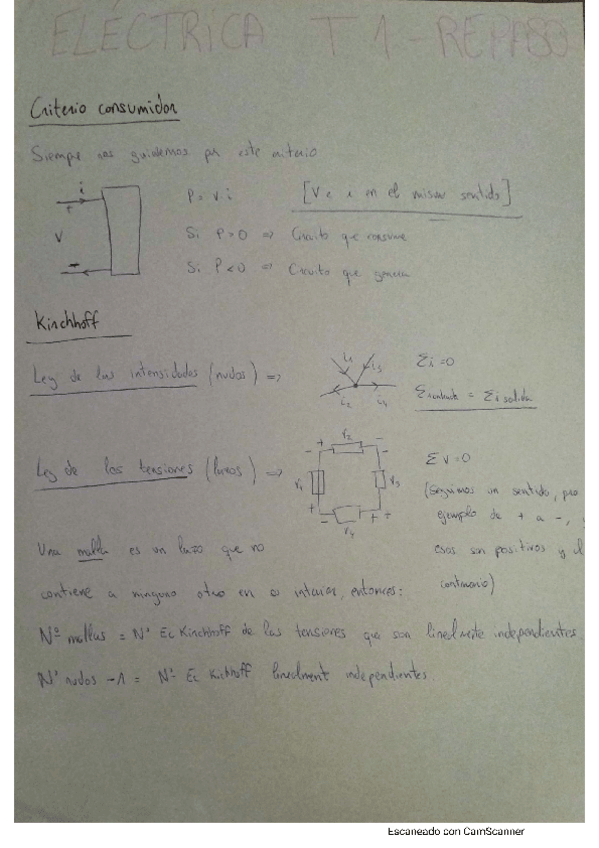 ELÉCTRICA T1 - REPASO
Criterio consumidor
Siempre nos guiaremos por este criterio
i
+
V
-
P = V i
[V e i en el mismo sentido]
Si P > 0 => Circuito que consume
Si P < 0 => Circuito que genera
Kirchhoff
Ley de las intensidades (nudos) =>
i1 i3
i2 i4
Σi = 0
Σi entrada = Σi salida
Ley de las tensiones (lazos) =>
V1 V2 V3 V4
ΣV = 0
(Seguimos un sentido, por
ejemplo de + a -, y
esos son positivos y el
contrario)
Una malla es un lazo que no
contiene a ninguno otro en su interior, entonces:
Nº mallas = Nº Ec Kirchhoff de las tensiones que son linealmente independientes
Nº nudos - 1 = Nº Ec linealment independientes
Escaneado con CamScanner